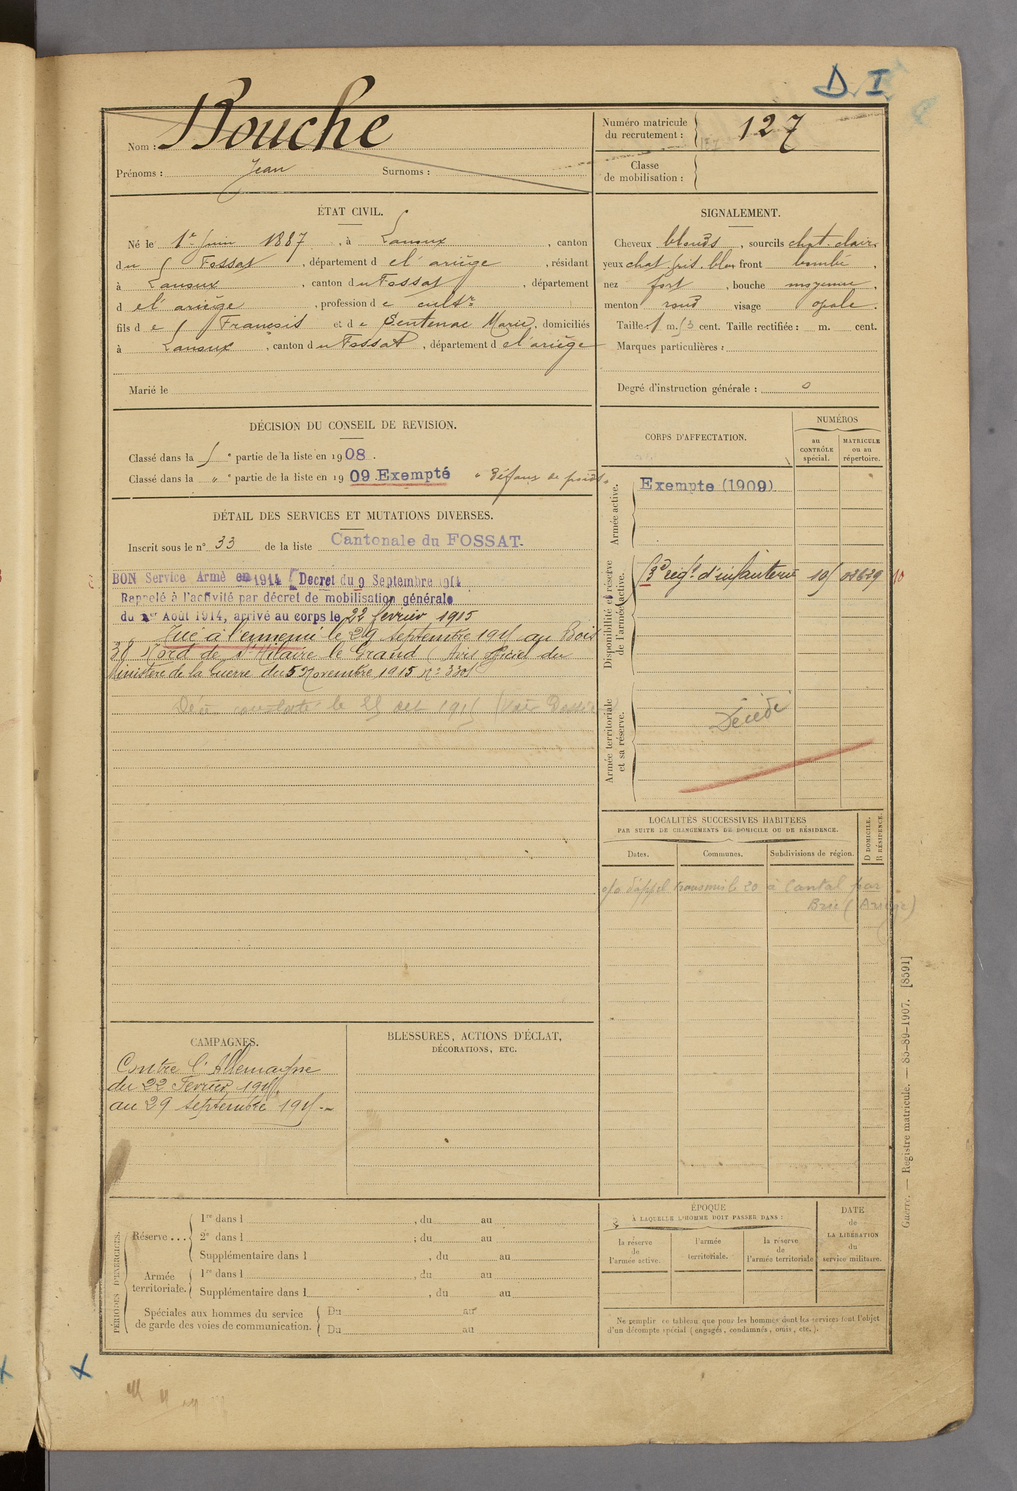 D. I
Nom : Bouche
Prénoms : Jean Surnoms :
Numéro matricule
du recrutement : 127
Classe
de mobilisation :
ÉTAT CIVIL.
Né le 1er Juin 1887, à Lanoux, canton
du Fossat, département de l'ariège, résidant
à Lanoux, canton du Fossat, département
de l'ariège, profession de cultr
fils de François et de Sentenac Marie, domiciliés
à Lanoux, canton du Fossat, département de l'ariège
Marié le
SIGNALEMENT.
Cheveux blonds, sourcils chat. clair,
yeux chat. gris. bleu front bombé,
nez fort, bouche moyenne,
menton rond visage ovale.
Taille : 1 m. cent. Taille rectifiée : m. cent.
Marques particulières :
Degré d'instruction générale : 0
DÉCISION DU CONSEIL DE REVISION.
Classé dans la partie de la liste en 1908.
Classé dans la " partie de la liste en 1909 Exempté "Défaut de poids"
DÉTAIL DES SERVICES ET MUTATIONS DIVERSES.
Inscrit sous le n° 33 de la liste Cantonale du FOSSAT.
BON Service Armé en 1914 [Decret du 9 Septembre 1914
Rappelé à l'activité par décret de mobilisation générale
du 1er Août 1914, arrivé au corps le 22 fevrier 1915
Tué à l'ennemi le 29 septembre 1915 au Bois
38 Nord de St Hilaire le Grand (Avis officiel du
Ministère de la Guerre du 5 Novembre 1915 No
le 1915 (Voir Dossier
CORPS D'AFFECTATION.
NUMÉROS
au
CONTRÔLE
spécial.
MATRICULE
ou au
répertoire.
Armée active.
Exempte (1909)
Disponibilité et réserve
de l'armée active.
regt d'infanterie 10
Armée territoriale
et sa réserve.
Décédé
LOCALITÉS SUCCESSIVES HABITÉES
PAR SUITE DE CHANGEMENTS DE DOMICILE OU DE RÉSIDENCE.
Dates.
Communes.
Subdivisions de région.
D DOMICILE.
R RÉSIDENCE.
o/o d'appel transmis le 20 à Cantal par
Brie (Ariège)
CAMPAGNES.
Contre l'Allemagne
du 22 Fevrier 1915
au 29 septembre 1915
BLESSURES, ACTIONS D'ÉCLAT,
DÉCORATIONS, ETC.
PÉRIODES D'EXERCICES.
Réserve...
1re dans l , du au
2e dans l ; du au
Supplémentaire dans l , du au
Armée
territoriale.
1re dans l , du au
Supplémentaire dans l , du au
Spéciales aux hommes du service
de garde des voies de communication.
Du au
Du au
ÉPOQUE
À LAQUELLE L'HOMME DOIT PASSER DANS :
la réserve
de
l'armée active.
l'armée
territoriale.
la réserve
de
l'armée territoriale
DATE
de
LA LIBÉRATION
du
service militaire.
Ne remplir ce tableau que pour les hommes dont les services font l'objet
d'un décompte spécial (engagés, condamnés, omis, etc.).
Guerre. — Registre matricule. — 85-89-1907. [8591]